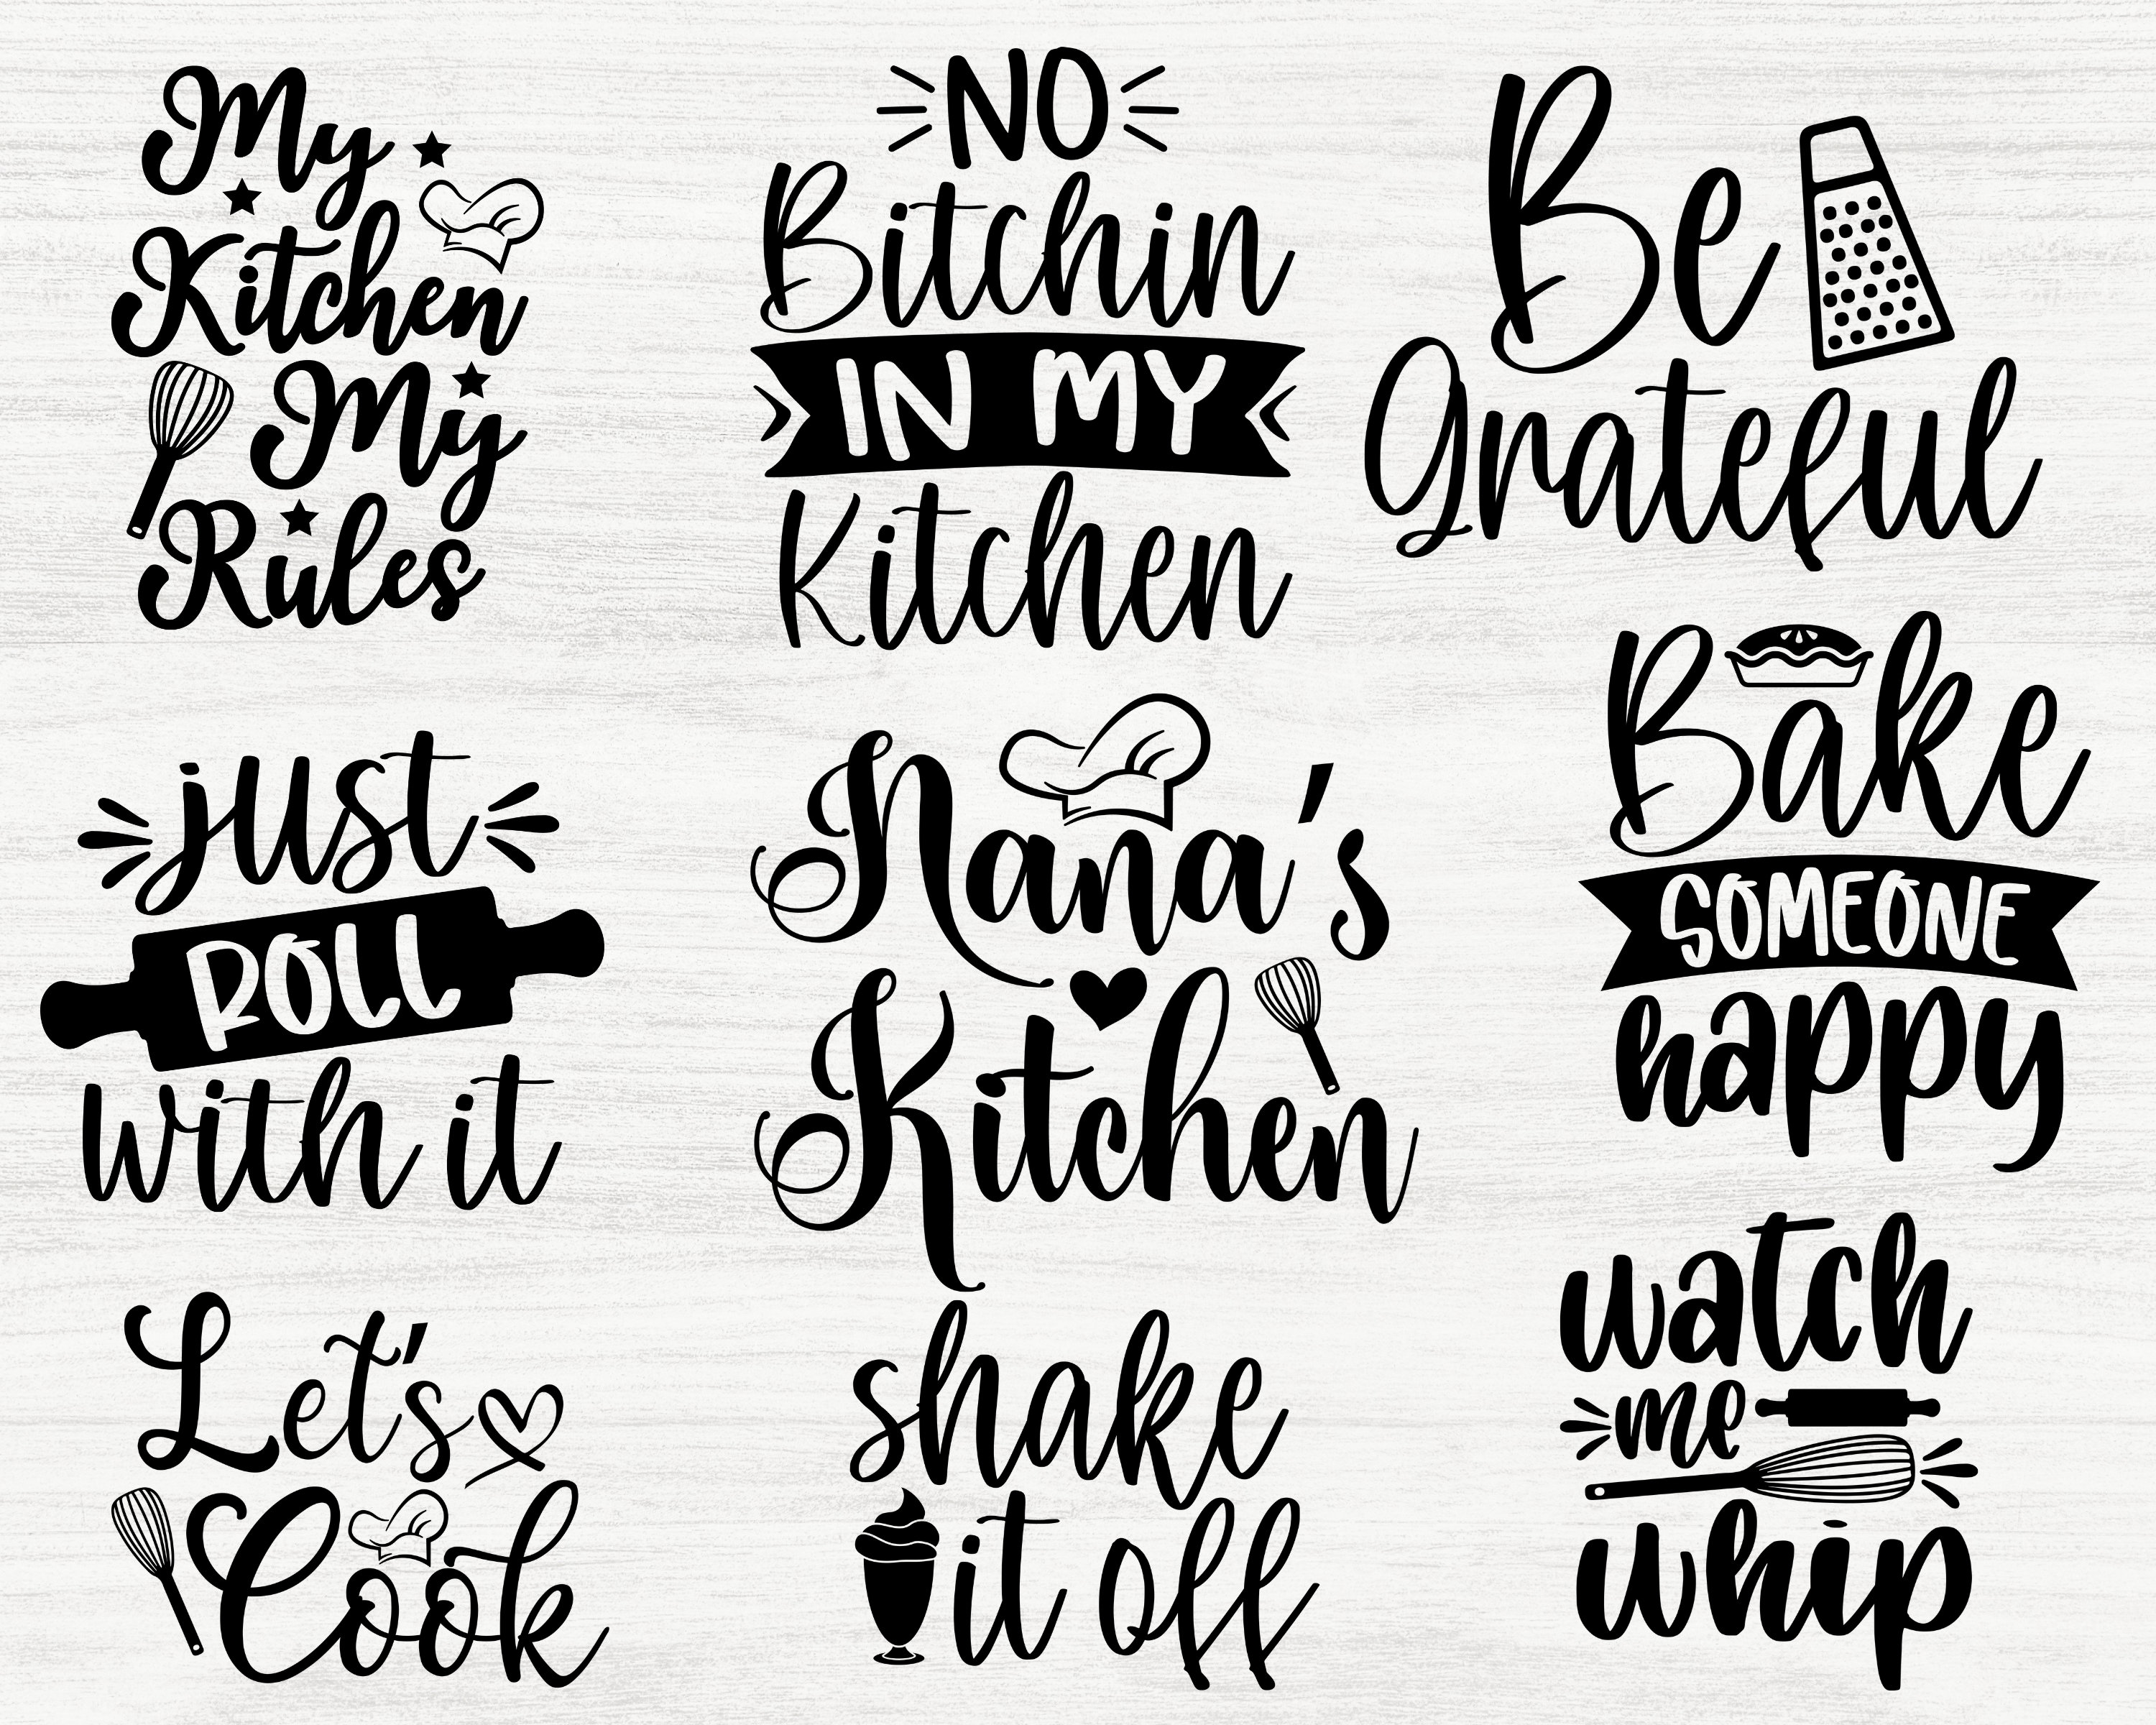 My
Kitchen
My
Rules
NO
Bitchin
IN MY
Kitchen
Be
Grateful
just
ROLL
with it
Nana's
Kitchen
Bake
SOMEONE
happy
Let's
Cook
shake
it off
watch
me
whip